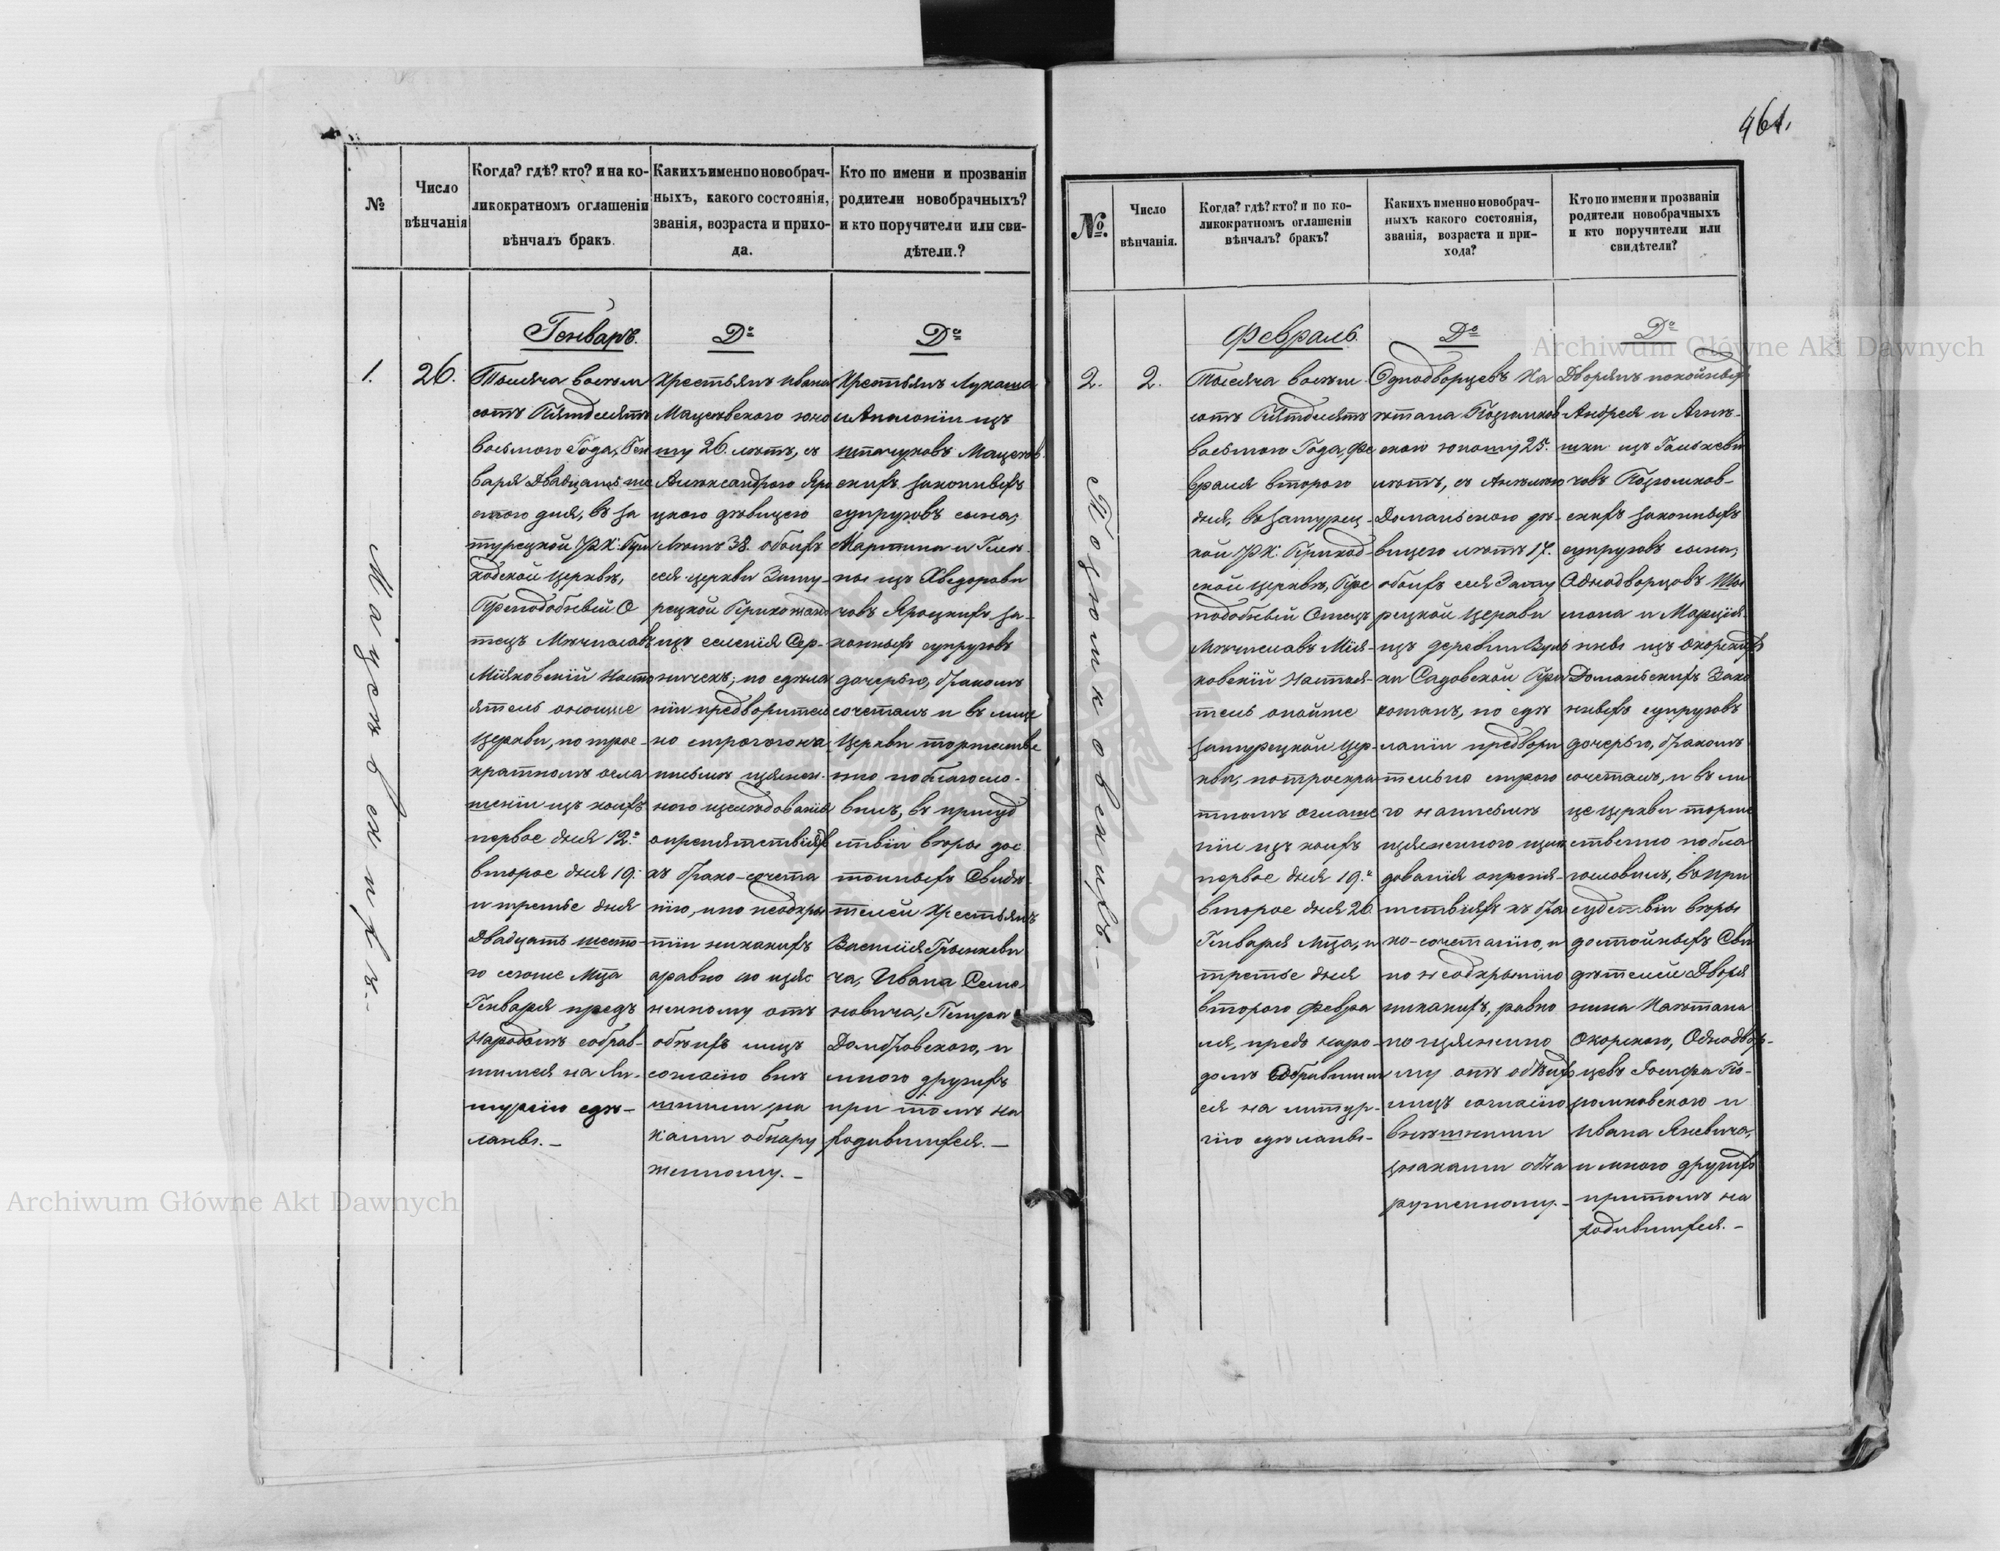 461.
№
Число
вѣнчанія
Когда? гдѣ? кто? и на ко-
ликократномъ оглашеніи
вѣнчалъ бракъ.
Какихъ именно новобрач-
ныхъ, какого состоянія,
званія, возраста и прихо-
да.
Кто по имени и прозваніи
родители новобрачныхъ?
и кто поручители или сви-
дѣтели.?
1.
26.
Мацѣевскихъ.-
Генварь.
Тысяча восѣм
сотъ Пятдесятъ
восьмого Года, Ген
варя двадцать ше
стого дня, въ За
турецкой Р.К: При
ходской Церквѣ,
Преподобный О
тецъ Мѣчиславъ
Міяковскій Насто
ятель оноише
Церкви, по трое-
кратномъ огла
шеніи изъ коихъ
первое дня 12.о
второе дня 19.
и третье дня
двадцать шесто-
го сегоше Мца
Генваря предъ
Народомъ собрав-
шимся на Ли-
тургію сдѣ-
ланы.-
До
Хрестьянъ Ивана
Мацѣевского юно
шу 26. лѣтъ, съ
Александрою Яро
цкою дѣвицею
лѣтъ 38. обоихъ
сея церкви Зату-
рецкой Прихожано
изъ селенія Сер-
ничекъ; по сдѣла
ніи предворитель
но строгогона
письмѣ изяснен-
ного изслѣдованія
опрепятствіяхъ
къ брако-сочета
нію, и по неоткры
тіи никакихъ
аравно по изяс
ненному отъ
обѣихъ лицъ
согласію внѣ
шними зна
ками обнару
женному.-
До
Хрестьянъ Лукаша
и Аполоніи изъ
Мацѣев
скихъ законныхъ
супруговъ сына,
Мартина и Теклі
ны изъ Хведорови
човъ Яроцкихъ за-
конныхъ супруговъ
дочерью, бракомъ
сочеталъ и въ лице
Церкви торжестве
нно поблагосло-
вилъ, въ присуд
ствіи вѣры дос
тойныхъ Свидѣ-
телей Хрестьянъ
Василія Грынкеви
ча, Ивана Семе
новича, Петра
Домбровского, и
много другихъ
при томъ на
ходившихся.-
№.
Число
вѣнчанія.
Когда? гдѣ? кто? и по ко-
ликократномъ оглашеніи
вѣнчалъ? бракъ?
Какихъ именно новобрач-
ныхъ какого состоянія,
званія, возраста и при-
хода?
Кто по имени и прозваніи
родители новобрачныхъ
и кто поручители или
свидѣтели?
2.
2.
Позюмковскихъ.-
Февраль.
Тысяча восѣм
сотъ Пятдесятъ
восьмого Года, Фе
враля второго
дня, въ Затурец-
кой Р.К: Приход-
ской Церквѣ, Пре
подобный Отецъ
Мѣчиславъ Мія-
ковскій Настоя-
тель онойше
Затурецкой Цер-
кви, по троекра
тномъ оглаше
ніи изъ коихъ
первое дня 19.о
второе дня 26.
Генваря Мца, и
третье дня
второго Февра
ля, предъ наро-
домъ собравшим
ся на литур-
гію сдѣланы-
До
Однодворцевъ Ка
ѣтана Позюмков
ского юношу 25.
лѣтъ, съ Анѣлею
Доманьского дѣ-
вицею лѣтъ 17.
обоихъ сея Зату
рецкой Церкви
изъ деревни Вуль
ки Садовской При
хожанъ, по сдѣ
ланіи предвори
тельно строго
го на письмѣ
изясненного изслѣ
дованія опрепя-
тствіяхъ къ бра
ко-сочетанію, и
по неоткрытію
никакихъ, равно
по изясненно
му отъ обѣихъ
лицъ согласію
внѣшними
знаками обна
руженному.-
До
Дворянъ покойныхъ
Андрея и Агнѣ-
шки изъ Галькеви
човъ Позюмков-
скихъ законныхъ
супруговъ сына,
Однодворцовъ Шы
мона и Марціян
ны изъ Окорскихъ
Доманьскихъ Зако
нныхъ супруговъ
дочерью, бракомъ
сочеталъ, и въ ли
це Церкви торже
ственно побла
гословилъ, въ при
судствіи вѣры
достойныхъ Сви
дѣтелей Дворя
нина Каѣтана
Окорского, Однодвор-
цевъ Іосифа По-
зюмковского и
Ивана Яневича,
и много другихъ
притомъ на
ходившихся.-
Archiwum Główne Akt Dawnych
Archiwum Główne Akt Dawnych